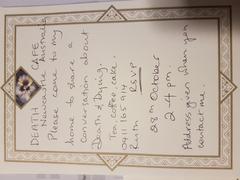 DEATH CAFE
Newcastle Australia
Please come to my
home to share a
conversation about
Death & Dying.
Tea, coffee, cake.
0411 165 914
Ruth RSVP
28th October
2-4 pm.
Address given when you
contact me.